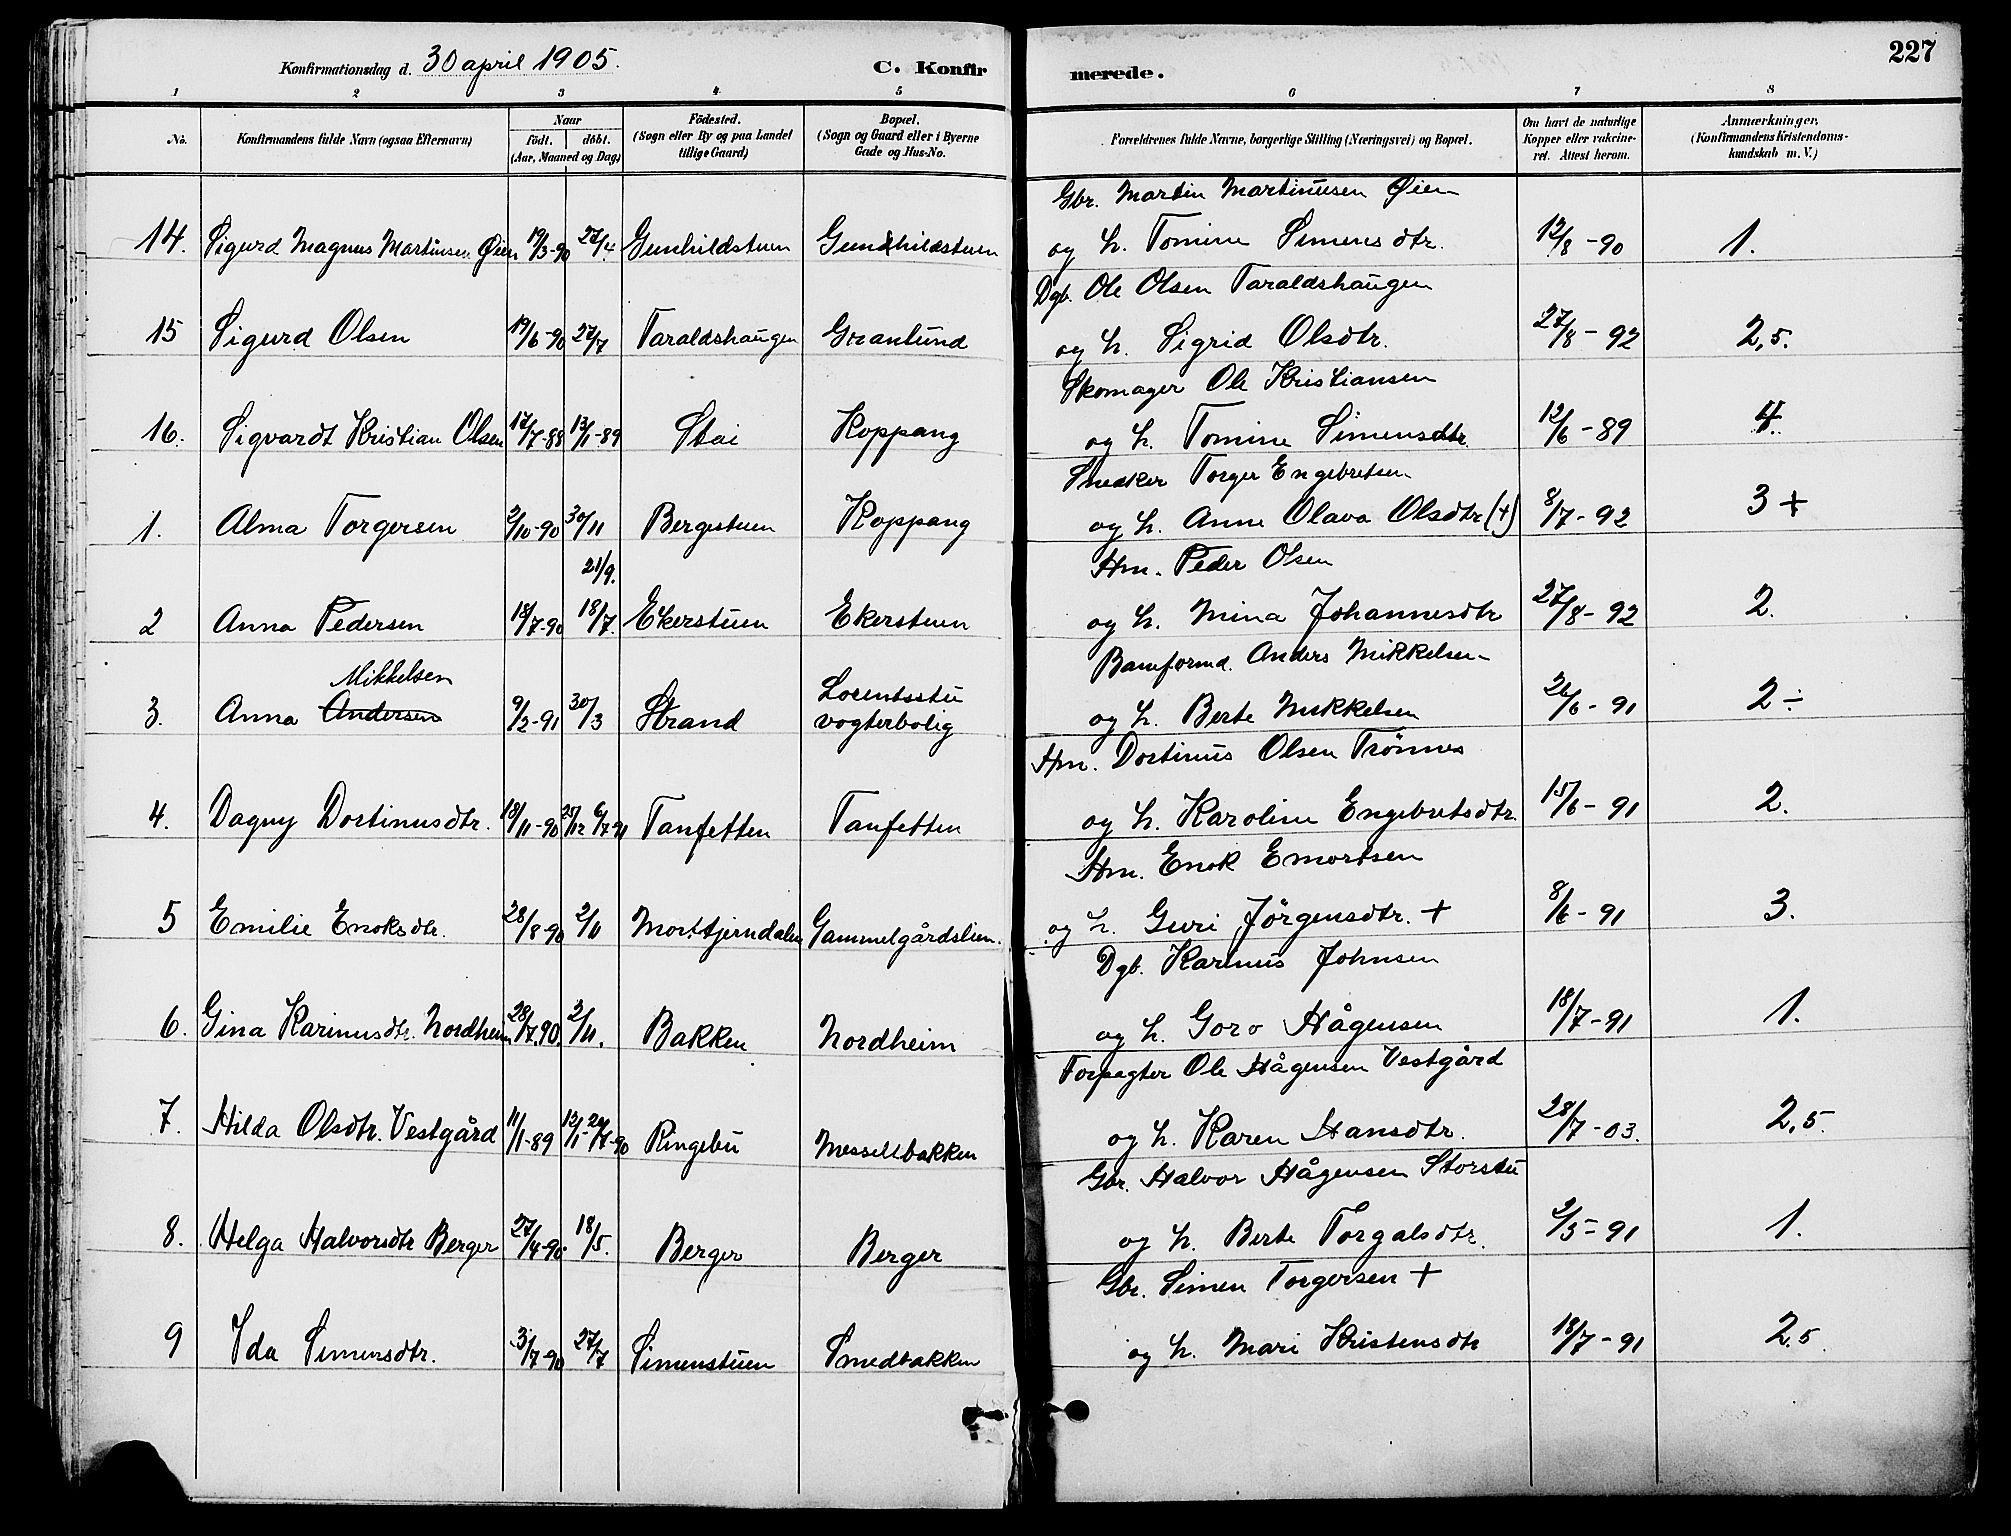 Konfirmationsdag d. 30 april 1905.
C. Konfir
merede.
227
1 2 3 4 5 6 7 8
No.
Konfirmandens fulde Navn (ogsaa Efternavn)
Naar
födt. döbt.
(Aar, Maaned og Dag)
Födested.
(Sogn eller By og paa Landet
tillige Gaard)
Bopæl.
(Sogn og Gaard eller i Byerne
Gade og Hus-No.
Forældrenes fulde Navne, borgerlige Stilling (Næringsvei) og Bopæl.
Om havt de naturlige
Kopper eller vakcine-
ret. Attest herom.
Anmærkninger.
(Konfirmandens Kristendoms-
kundskab m. V.)
Gbr. Martin Martinusen Øien
14. Sigurd Magnus Martinsen Øien 19/3-90 27/4 Gunhildstuen Gundhildstuen og h. Tomine Simensdtr. 12/8-90 1.
Dgb. Ole Olsen Taraldshaugen
15 Sigurd Olsen 19/6-90 27/7 Taraldshaugen Granlund og h. Sigrid Olsdtr. 27/8-92 2,5.
Skomager Ole Kristiansen
16. Sigvardt Kristian Olsen 17/7-88 13/1-89 Stai Koppang og h. Tomine Simensdtr. 12/6-89 4.
Snedker Torger Engebretsen
1. Alma Torgersen 2/10-90 30/11 Bergestuen Koppang og h. Anne Olava Olsdtr (+) 8/7-92 3+
21/9. Hm. Peder Olsen
2 Anna Pedersen 18/7-90 18/7. Ekerstuen Ekerstuen og h. Mina Johannesdtr 27/8-92 2.
Mikkelsen Baneformd. Anders Mikkelsen
3. Anna Andersen 9/2-91 30/3 Strand Lorentsstu vogterbolig og h. Berte Mikkelsen 26/6-91 2÷
Hm. Dortinus Olsen Trönnes
4. Dagny Dortinusdtr. 18/11-90 25/12 6/7-91 Tanfetten Tanfetten og h. Karoline Engebretsdtr. 15/6-91 2.
Hm. Enok Emortsen
5 Emilie Enoksdtr. 28/8-90 2/11 Morttjerndalen Gammelgårdslien. og h. Guri Jörgensdtr. + 8/6-91 3.
Dgb. Karinus Johnsen
6. Gina Karinusdtr. Nordheim 28/7.90. 2/11. Bakken Nordheim og h. Goro Hågensen 18/7-91 1.
Forpagter Ole Hågensen Vestgård
7. Hilda Olsdtr. Vestgård 11/1-89 Ringebu Messeltbakken og h. Karen Hansdtr. 28/7-03. 2,5.
Gbr. Halvor Hågensen Storstu
8. Helga Halvorsdtr Berger 27/4-90. 18/5. Berger Berger og h. Berte Torgalsdtr. 2/5-91 1.
Gbr. Simen Torgersen +
9 Ida Simensdtr. 3/7-90 27/7 Simenstuen Smedbakken og h. Mari Kristensdtr 18/7-91 2.5